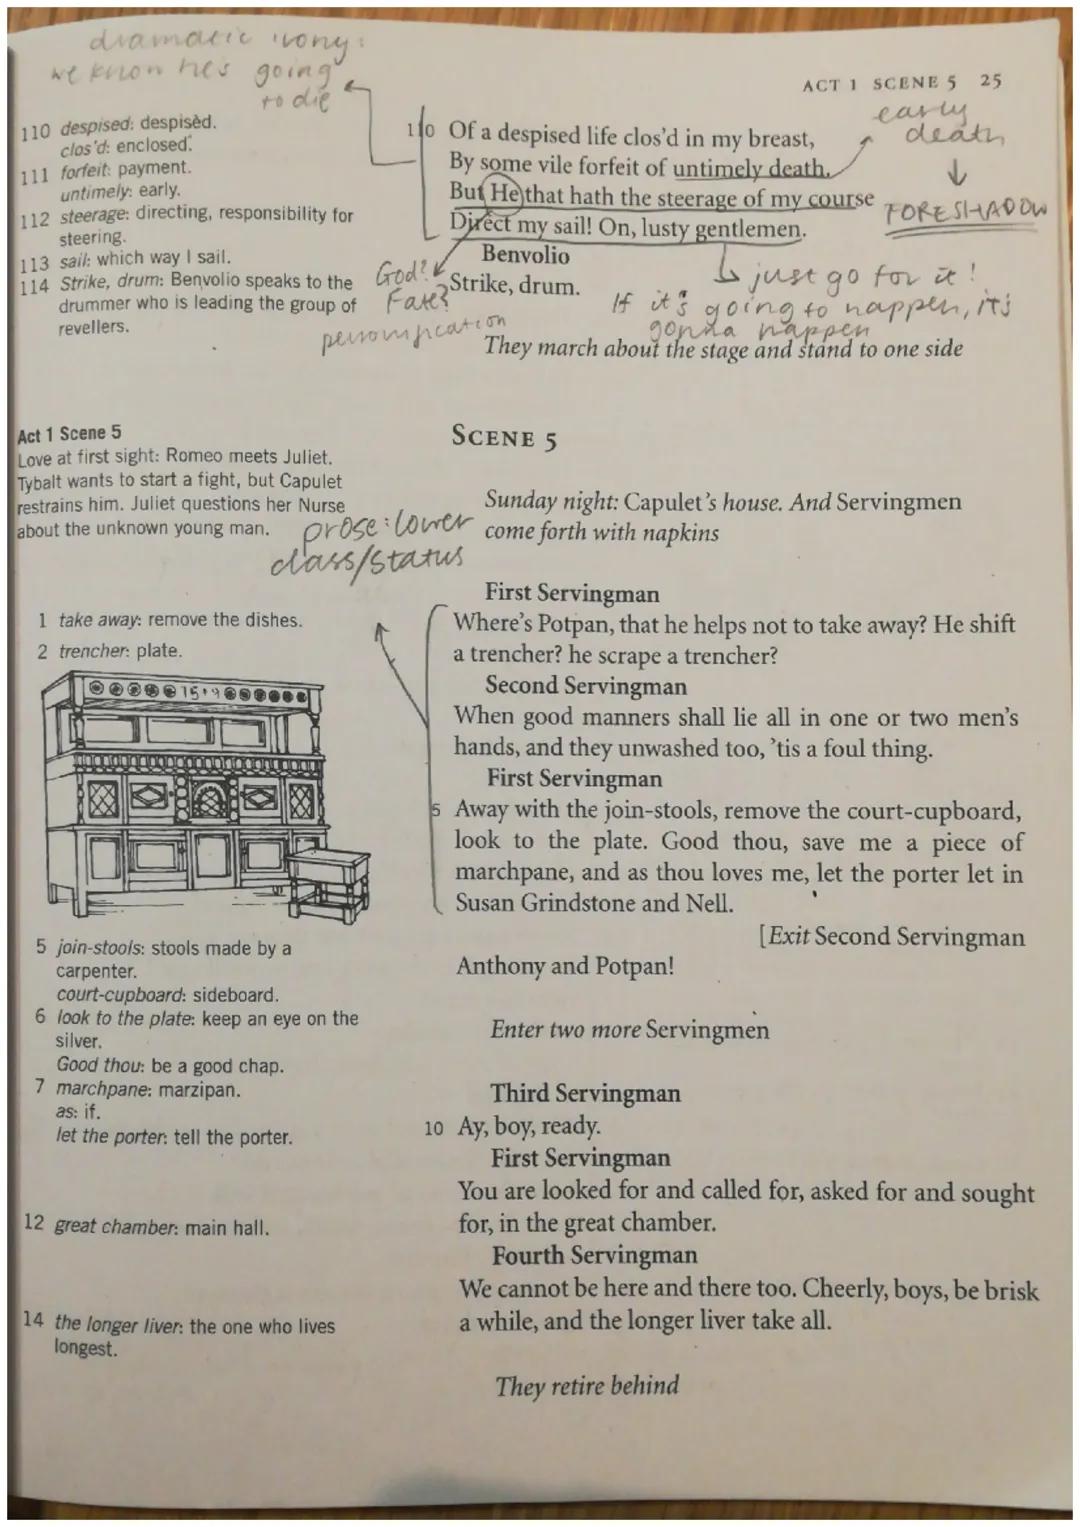 dramatic irony:
we know he's going
to die
ACT 1 SCENE 5 25
early
death
↓
FORESHADOW
110 despised: despisèd.
clos'd: enclosed.
111 forfeit: payment.
untimely: early.
112 steerage: directing, responsibility for
steering.
113 sail: which way I sail.
114 Strike, drum: Benvolio speaks to the
drummer who is leading the group of
revellers.
110 Of a despised life clos'd in my breast,
By some vile forfeit of untimely death.
But He that hath the steerage of my course
Direct my sail! On, lusty gentlemen.
Benvolio
Strike, drum.
God?
Fate?
personification
just go for it!
If it's going to happen, it's
gonna happen
They march about the stage and stand to one side
Act 1 Scene 5
Love at first sight: Romeo meets Juliet.
Tybalt wants to start a fight, but Capulet
restrains him. Juliet questions her Nurse
about the unknown young man.
prose: lower
class/status
SCENE 5
Sunday night: Capulet's house. And Servingmen
come forth with napkins
1 take away: remove the dishes.
2 trencher: plate.
15+9
5 join-stools: stools made by a
carpenter.
court-cupboard: sideboard.
6 look to the plate: keep an eye on the
silver.
Good thou: be a good chap.
7 marchpane: marzipan.
as: if.
let the porter: tell the porter.
12 great chamber: main hall.
14 the longer liver: the one who lives
longest.
First Servingman
Where's Potpan, that he helps not to take away? He shift
a trencher? he scrape a trencher?
Second Servingman
When good manners shall lie all in one or two men's
hands, and they unwashed too, 'tis a foul thing.
First Servingman
5 Away with the join-stools, remove the court-cupboard,
look to the plate. Good thou, save me a piece of
marchpane, and as thou loves me, let the porter let in
Susan Grindstone and Nell.
[Exit Second Servingman
Anthony and Potpan!
Enter two more Servingmen
Third Servingman
10 Ay, boy, ready.
First Servingman
You are looked for and called for, asked for and sought
for, in the great chamber.
Fourth Servingman
We cannot be here and there too. Cheerly, boys, be brisk
a while, and the longer liver take all.
They retire behind